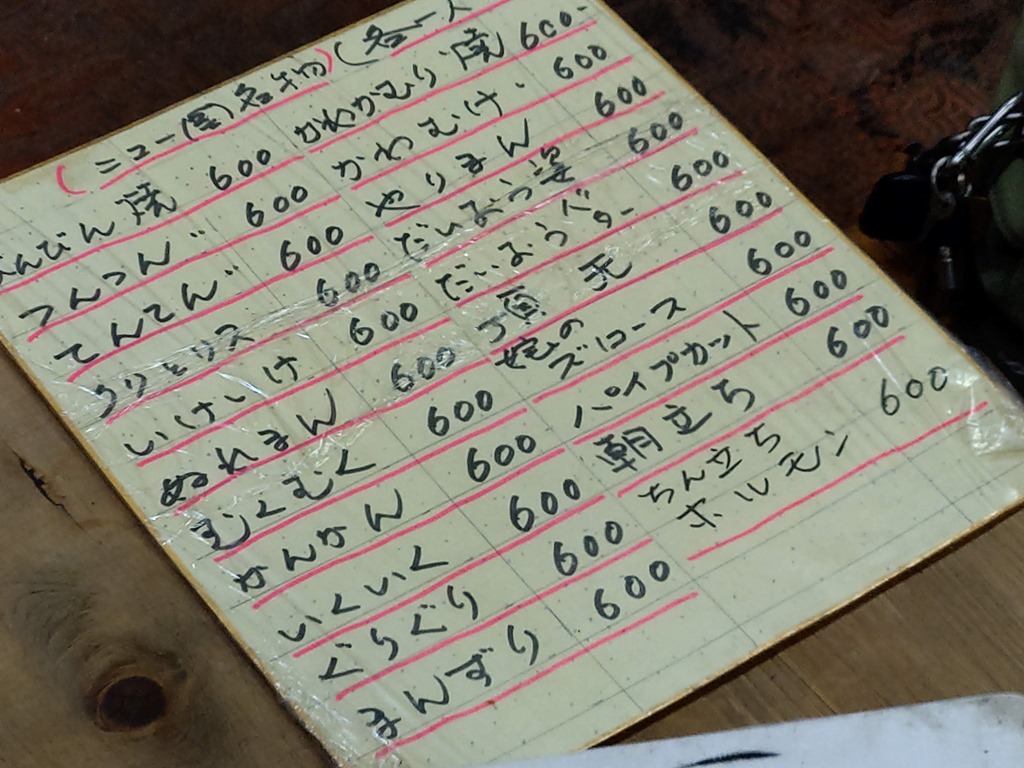 (ニュー(宝)名物)(各一人
びんびん焼 600
つんつん 600
てんてん 600
うりとりス 600
いけいけ 600
ぬれまん 600
むくむく 600
かんかん 600
いくいく 600
ぐりぐり 600
まんずり 600
かわかむり焼 600
かわむけ 600
やりまん 600
だいよう姿 600
だいようバター 600
手 600
ズロース 600
パイプカット 600
朝立ち 600
ちん立ちホルモン 600